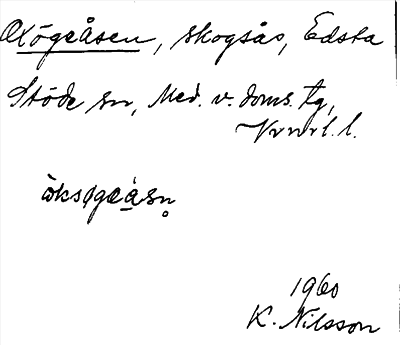 Oxögeåsen, skogsås, Edsta
Stöde sn, Med. v. doms. tg,
Vrnrl. l.
òksøgeàsn̥
1960
K. Nilsson